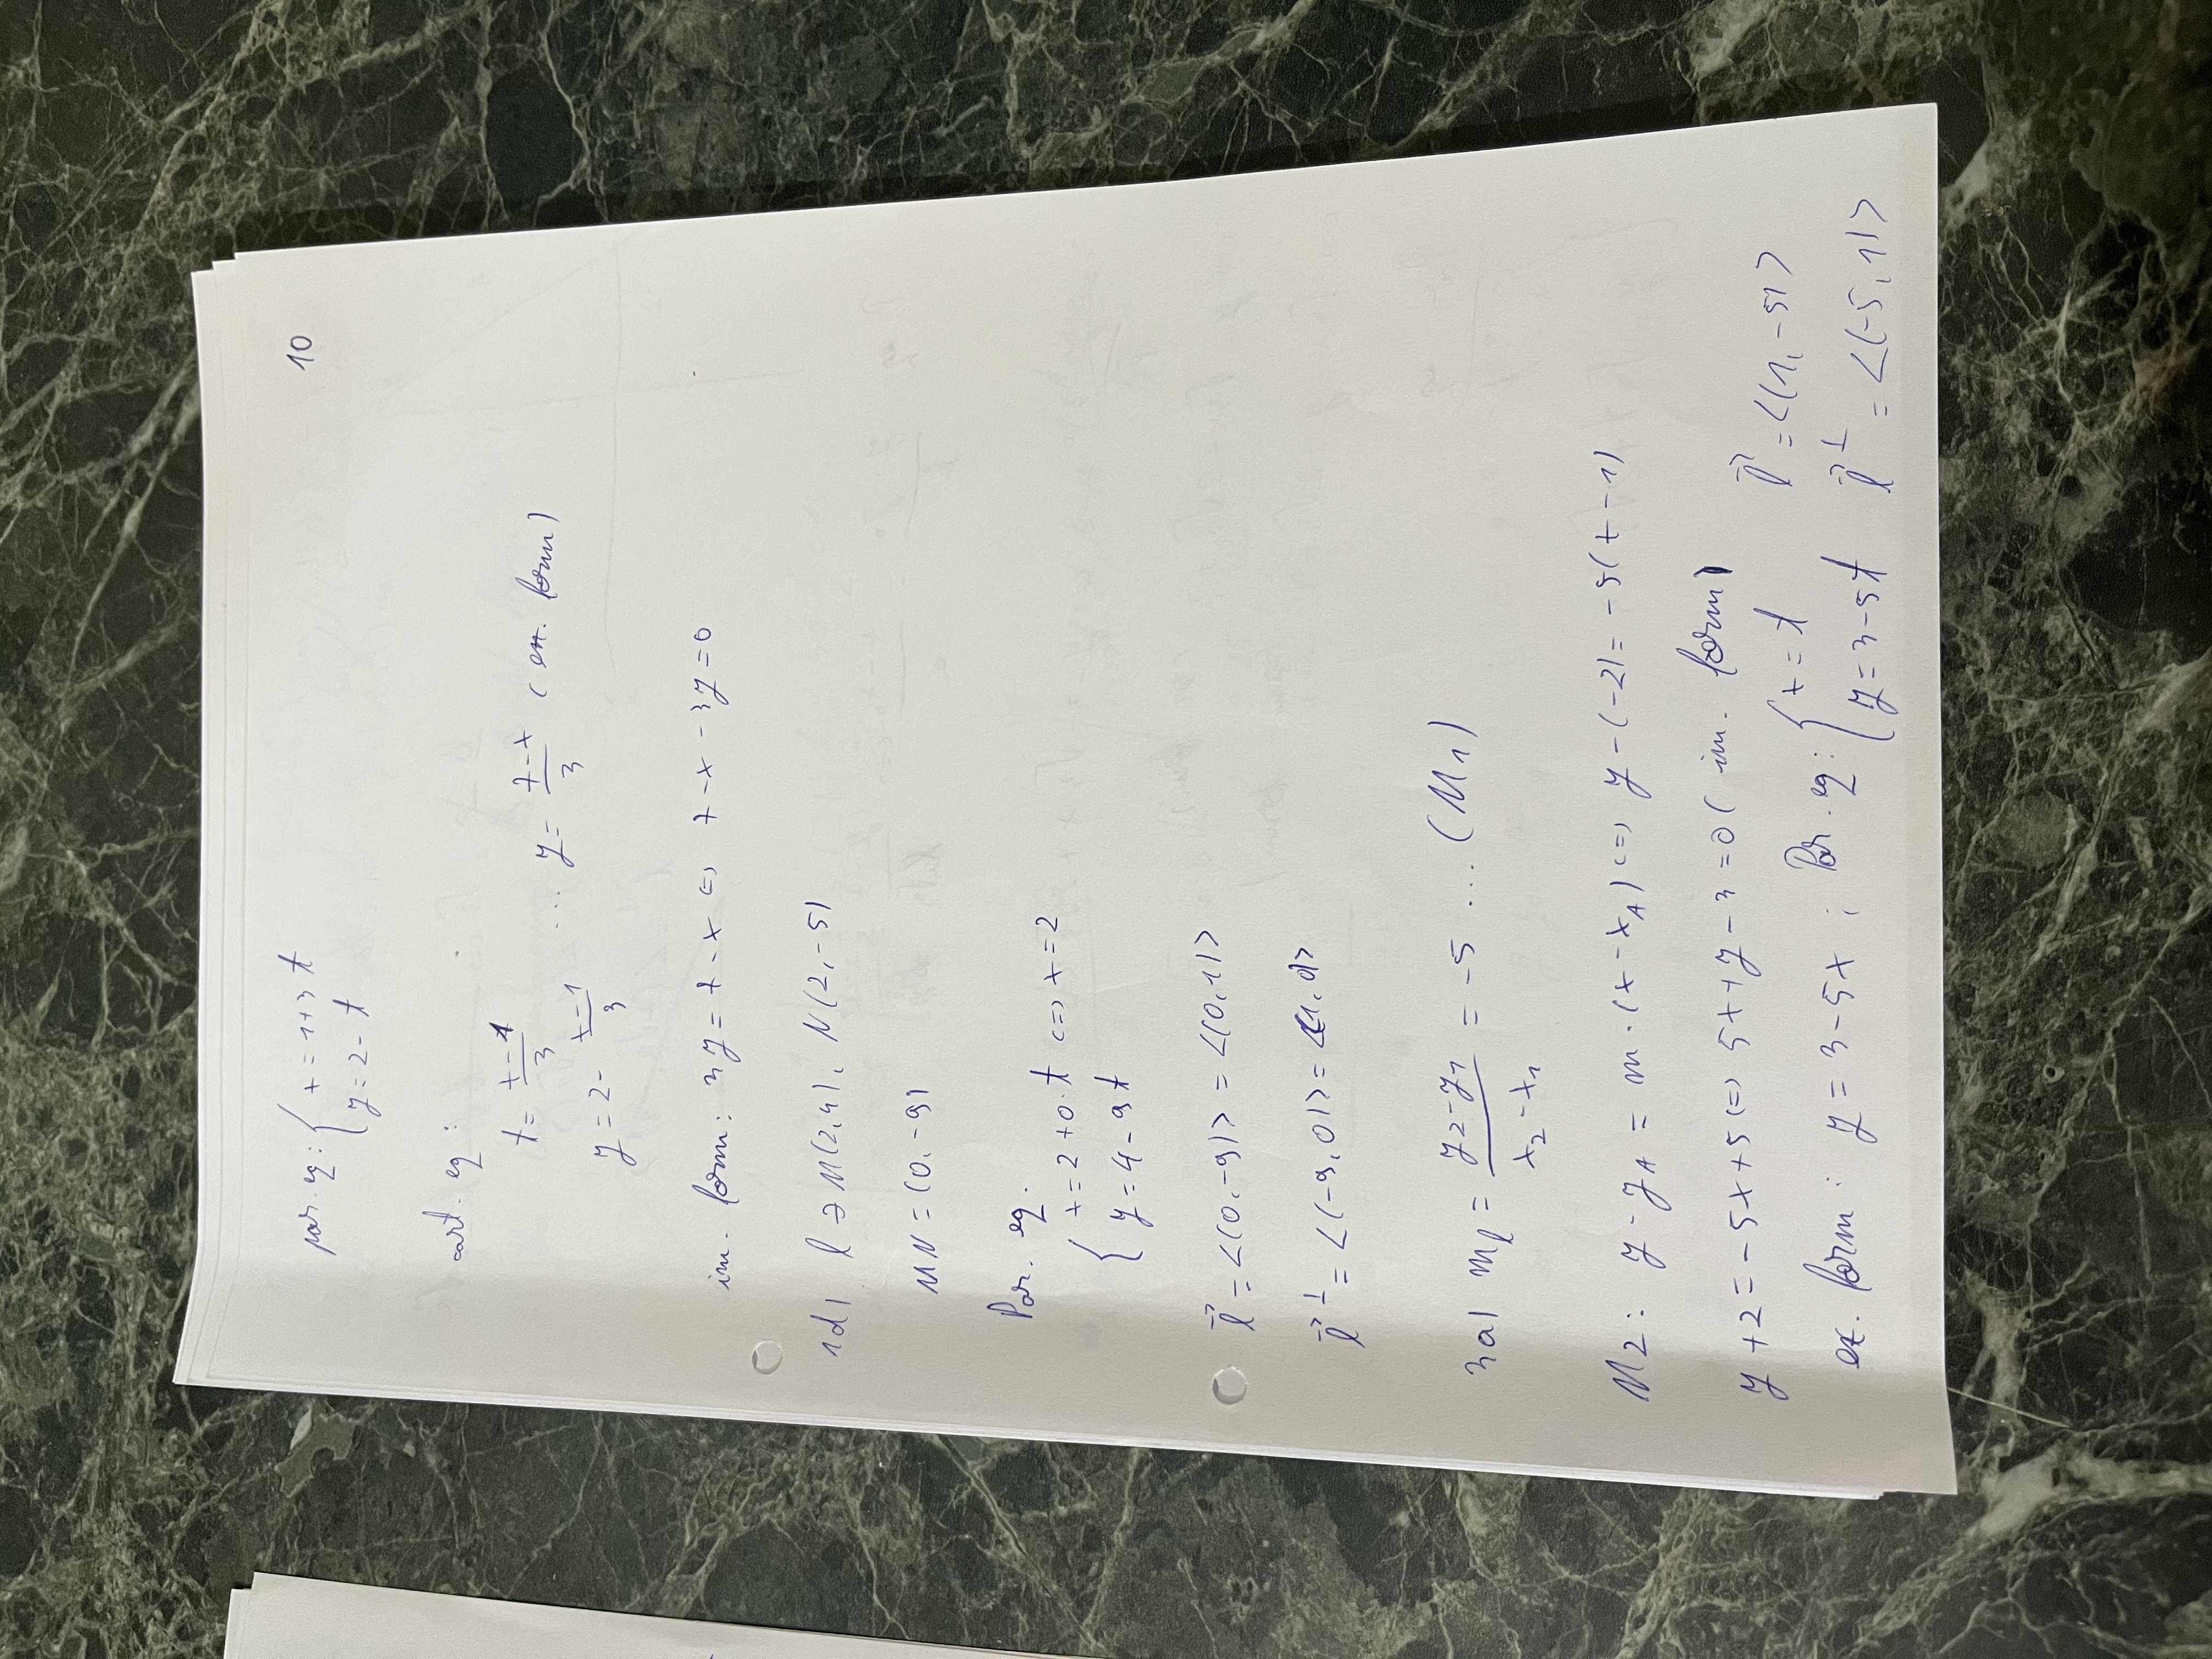 10
par. eq: { x = 1+3t
y = 2 - t
cart. eq :
t = (x-1)/3
y = 2 - (x-1)/3 ... y = (7-x)/3 (ex. form)
im. form: 3y = 7-x <=> 7-x-3y=0
1d) l ∋ M(2,4), N(2,-5)
MN = (0,-9)
Par. eq.
{ x = 2+0·t <=> x=2
y = 4-9t
l⃗ = <(0,-9)> = <(0,1)>
l⃗^⊥ = <(-9,0)> = <(1,0)>
3a) m_l = (y₂-y₁)/(x₂-x₁) = -5 ... (M1)
M2: y - y_A = m·(x-x_A) <=> y-(-2) = -5(x-1)
y+2 = -5x+5 <=> 5x+y-3=0 (im. form)
ex. form: y = 3-5x ; Par. eq: { x = t
y = 3-5t
l⃗ = <(1,-5)>
l⃗^⊥ = <(-5,1)>